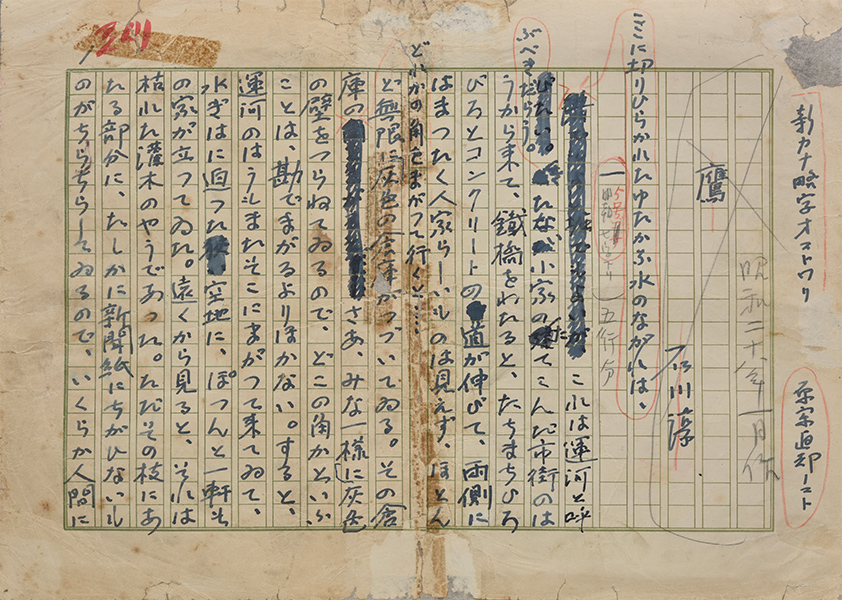 新カナ略字オコトワリ
昭和二十八年一月作
石川淳
鷹
ここに切りひらかれたゆたかな水のながれは、
一
五行分
これは運河と呼
ぶべきだらう。
小家の建てこんだ市街のは
うから来て、鐵橋をわたると、たちまちひろ
びろとコンクリートの道が伸びて、両側に
はまつたく人家らしいものは見えず、ほとん
ど無限に灰色の倉庫がつづいてゐる。その倉
どれかの角をまがつて行くと……
庫の
さあ、みな一様に灰色
の壁をつらねてゐるので、どこの角かといふ
ことは、勘でまがるよりほかない。すると、
運河のはうもまたそこにまがつて来てゐて、
水ぎはに迫つた空地に、ぽつんと一軒
の家が立つてゐた。遠くから見ると、それは
枯れた灌木のやうであつた。ただその枝にあ
たる部分に、たしかに新聞紙にちがひないも
のがちらちらしてゐるので、いくらか人間に